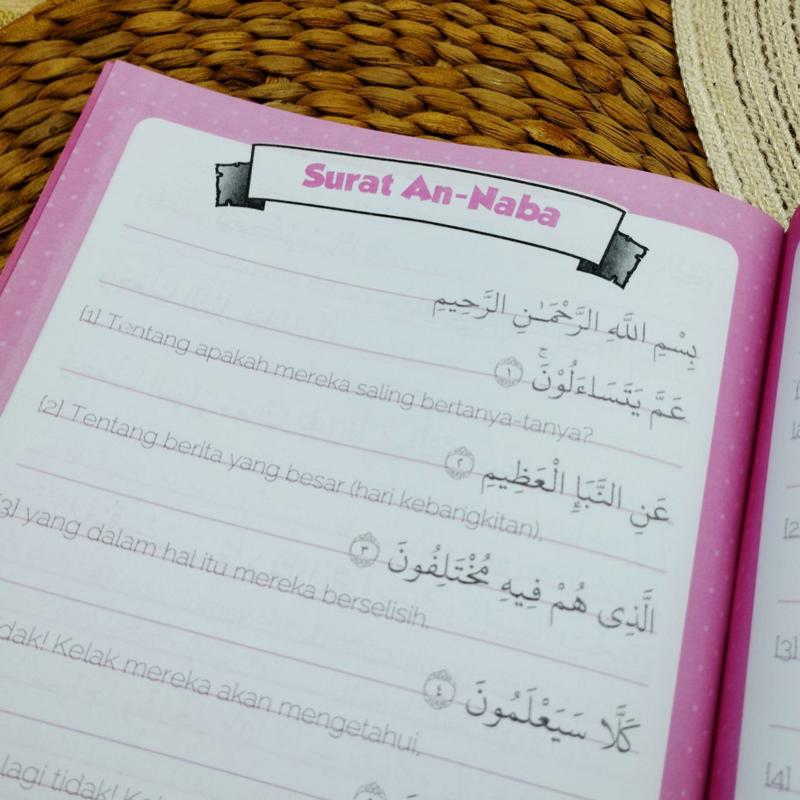 Surat An-Naba
بِسْمِ اللَّهِ الرَّحْمَـٰنِ الرَّحِيمِ
عَمَّ يَتَسَاءَلُوْنَۚ ١
[1] Tentang apakah mereka saling bertanya-tanya?
عَنِ النَّبَإِ الْعَظِيمِ ٢
[2] Tentang berita yang besar (hari kebangkitan),
الَّذِى هُمْ فِيهِ مُخْتَلِفُونَ ٣
[3] yang dalam hal itu mereka berselisih.
كَلَّا سَيَعْلَمُونَ ٤
tidak! Kelak mereka akan mengetahui,
lagi tidak!
[2]
[3]
[4]